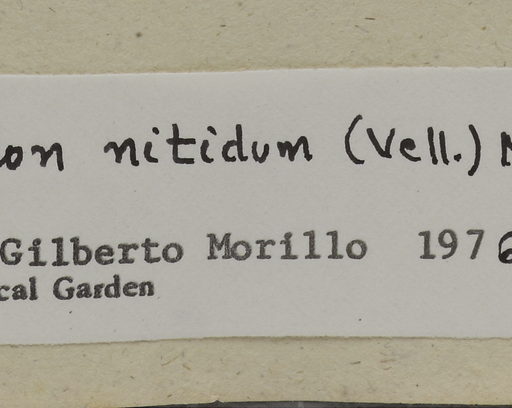 on nitidum (Vell.)
Gilberto Morillo 1976
cal Garden